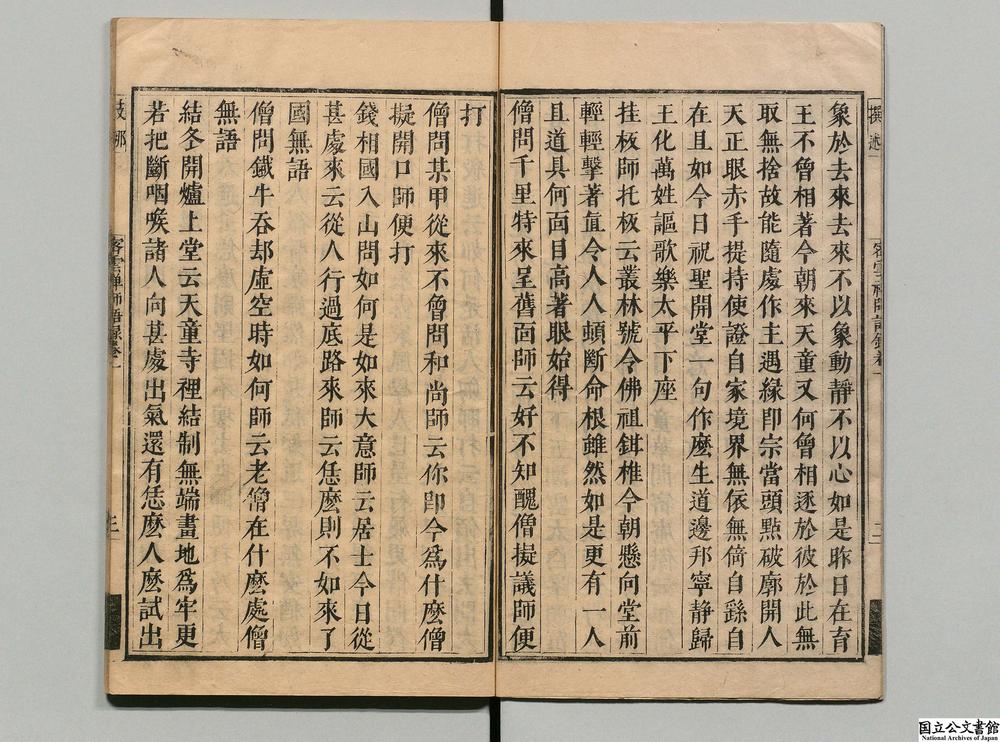 象於去來去來不以象動靜不以心如是昨日在育
王不曾相著今朝來天童又何曾相逐於彼於此無
取無捨故能隨處作主遇緣卽宗當頭點破廓開人
天正眼赤手提持使證自家境界無依無倚自繇自
在且如今日祝聖開堂一句作麼生道邊邦寧靜歸
王化萬姓謳歌樂太平下座
挂板師托板云叢林號令佛祖鉗椎今朝懸向堂前
輕輕擊著直令人人頓斷命根雖然如是更有一人
且道具何面目高著眼始得
僧問千里特來呈舊面師云好不知醜僧擬議師便
打
僧問某甲從來不曾問和尚師云你卽今爲什麼僧
擬開口師便打
錢相國入山問如何是如來大意師云居士今日從
甚處來云從人行過底路來師云恁麼則不如來了
國無語
僧問鐵牛吞却虛空時如何師云老僧在什麼處僧
無語
結冬開爐上堂云天童寺裡結制無端畫地爲牢更
若把斷咽喉諸人向甚處出氣還有恁麼人麼試出
撰述
密雲禪師語錄卷
二
密雲禪師語錄卷
三
国立公文書館
National Archives of Japan